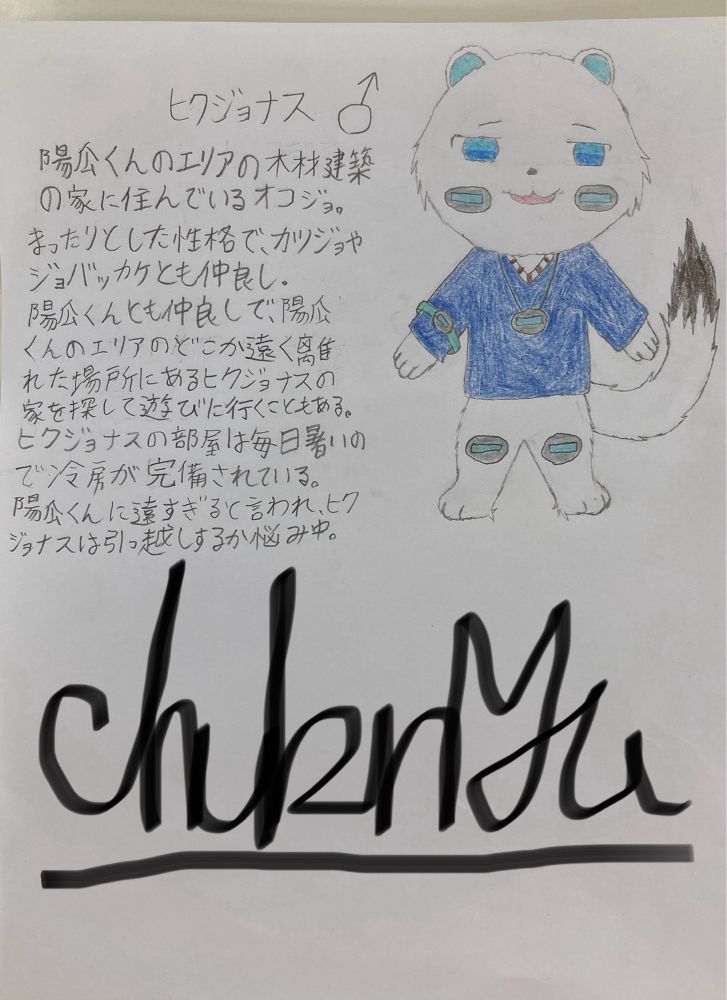 ヒクジョナス ♂
陽瓜くんのエリアの木材建築
の家に住んでいるオコジョ。
まったりとした性格で、カツジョや
ジョバッカケとも仲良し。
陽瓜くんとも仲良しで、陽瓜
くんのエリアのどこか遠く離
れた場所にあるヒクジョナスの
家を探して遊びに行くこともある。
ヒクジョナスの部屋は毎日暑いの
で冷房が完備されている。
陽瓜くんに遠すぎると言われ、ヒク
ジョナスは引っ越しするか悩み中。